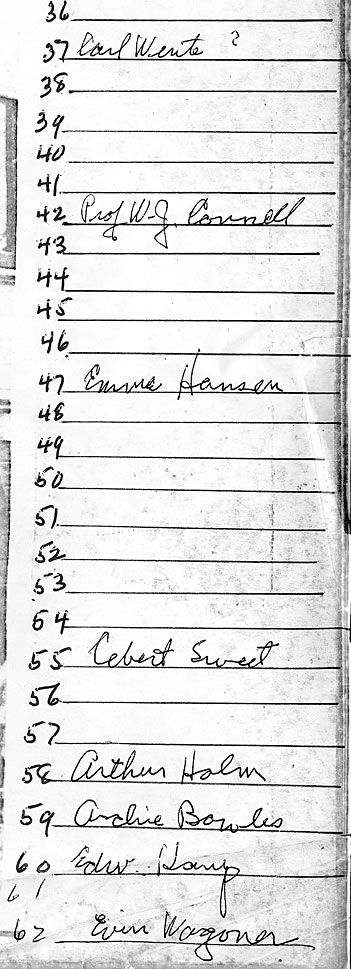 36
37 Carl Wente ?
38
39
40
41
42 Prof W.J. Connell
43
44
45
46
47 Emma Hansen
48
49
50
51
52
53
54
55 Cebert Sweet
56
57
58 Arthur Holm
59 Archie Bowles
60 Edw.
61
62 Wagoner